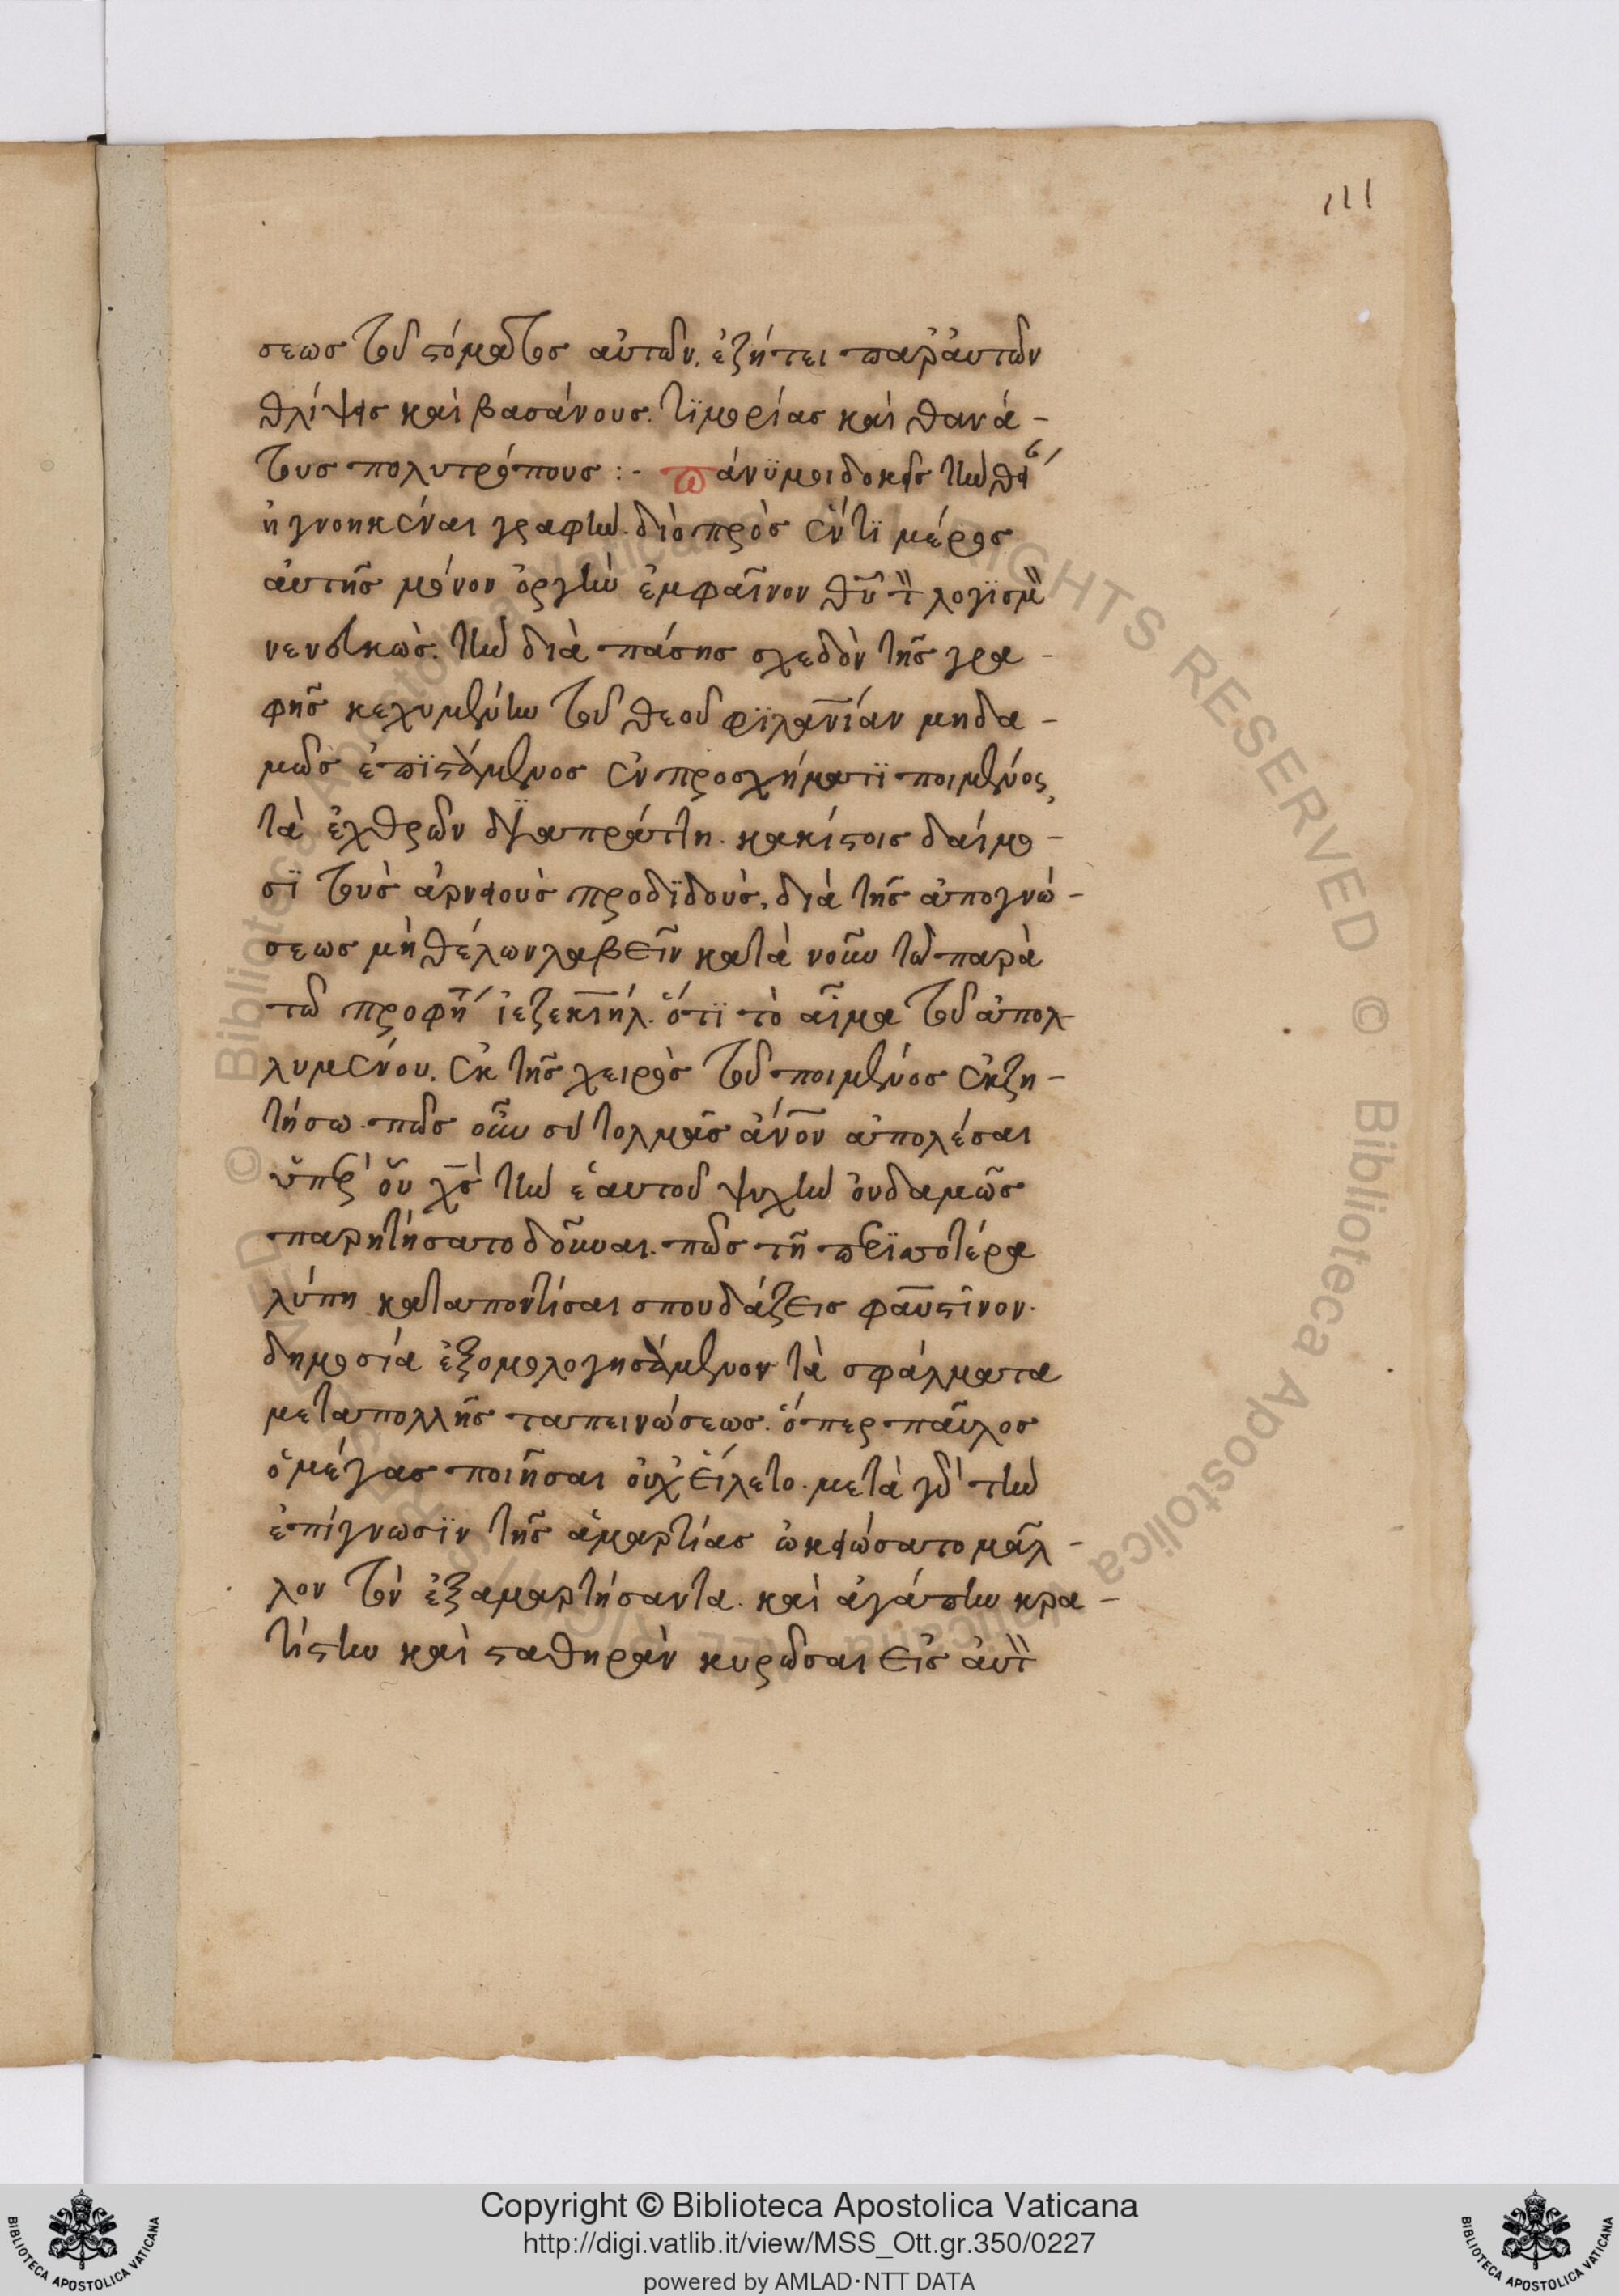 111
σεως τοῦ στόματος αὐτῶν. ἐζήτει παρ' αὐτῶν
θλίψεις καὶ βασάνους. τϊμορίας καὶ θανά-
τους πολυτρόπους :- πάνϋ μοι δοκεῖς τὴν θεί
ἠγνοηκέναι γραφήν. διὸ πρὸς ἕν τϊ μέρος
αὐτῆς μόνον ὀργὴν ἐμφαῖνον θῦ τ λογϊσμ
νενευκὼς. τὴν διὰ πάσης σχεδὸν τῆς γρα-
φῆς κεχυμένην τοῦ θεοῦ φϊλανίαν μηδα-
μῶς ἐπϊστάμενος ἐν προσχήματϊ ποιμένος,
τὰ ἐχθρῶν διαπράττη. κακίστοις δαίμο-
σϊ τοὺς ἀρνειοὺς προδϊδοὺς, διὰ τῆς ἀπογνώ-
σεως μὴ θέλων λαβεῖν κατὰ νοῦν τὼ παρὰ
τῶ προφή ἰεζεκιήλ. ὅτϊ τὸ αἷμα τοῦ ἀπολ-
λυμένου. ἐκ τῆς χειρὸς τοῦ ποιμένος ἐκζη-
τήσω. πῶς οὖν σὺ τολμᾶς ἄνον ἀπολέσαι
ὑπὲρ οὗ χς τὴν ἑαυτοῦ ψυχὴν οὐδαμῶς
παρητήσατο δοῦναι. πῶς τῆ περϊσοτέρα
λύπη καταποντίσαι σπουδάζεις φαυστῖνον.
δημοσία ἐξομολογησάμενον τὰ σφάλματα
μετὰ πολλῆς ταπεινώσεως. ὅπερ παῦλος
ὁ μέγας ποιῆσαι οὐχ εἵλετο. μετὰ γὰρ τὴν
ἐπίγνωσϊν τῆς ἁμαρτίας ὠκειώσατο μᾶλ-
λον τὸν ἐξαμαρτήσαντα. καὶ ἀγάπην κρα-
τίστην καὶ σταθηρὰν κυρῶσαι εἰς αὐτ
Copyright © Biblioteca Apostolica Vaticana
http://digi.vatlib.it/view/MSS_Ott.gr.350/0227
powered by AMLAD·NTT DATA
BIBLIOTECA APOSTOLICA VATICANA
BIBLIOTECA APOSTOLICA VATICANA